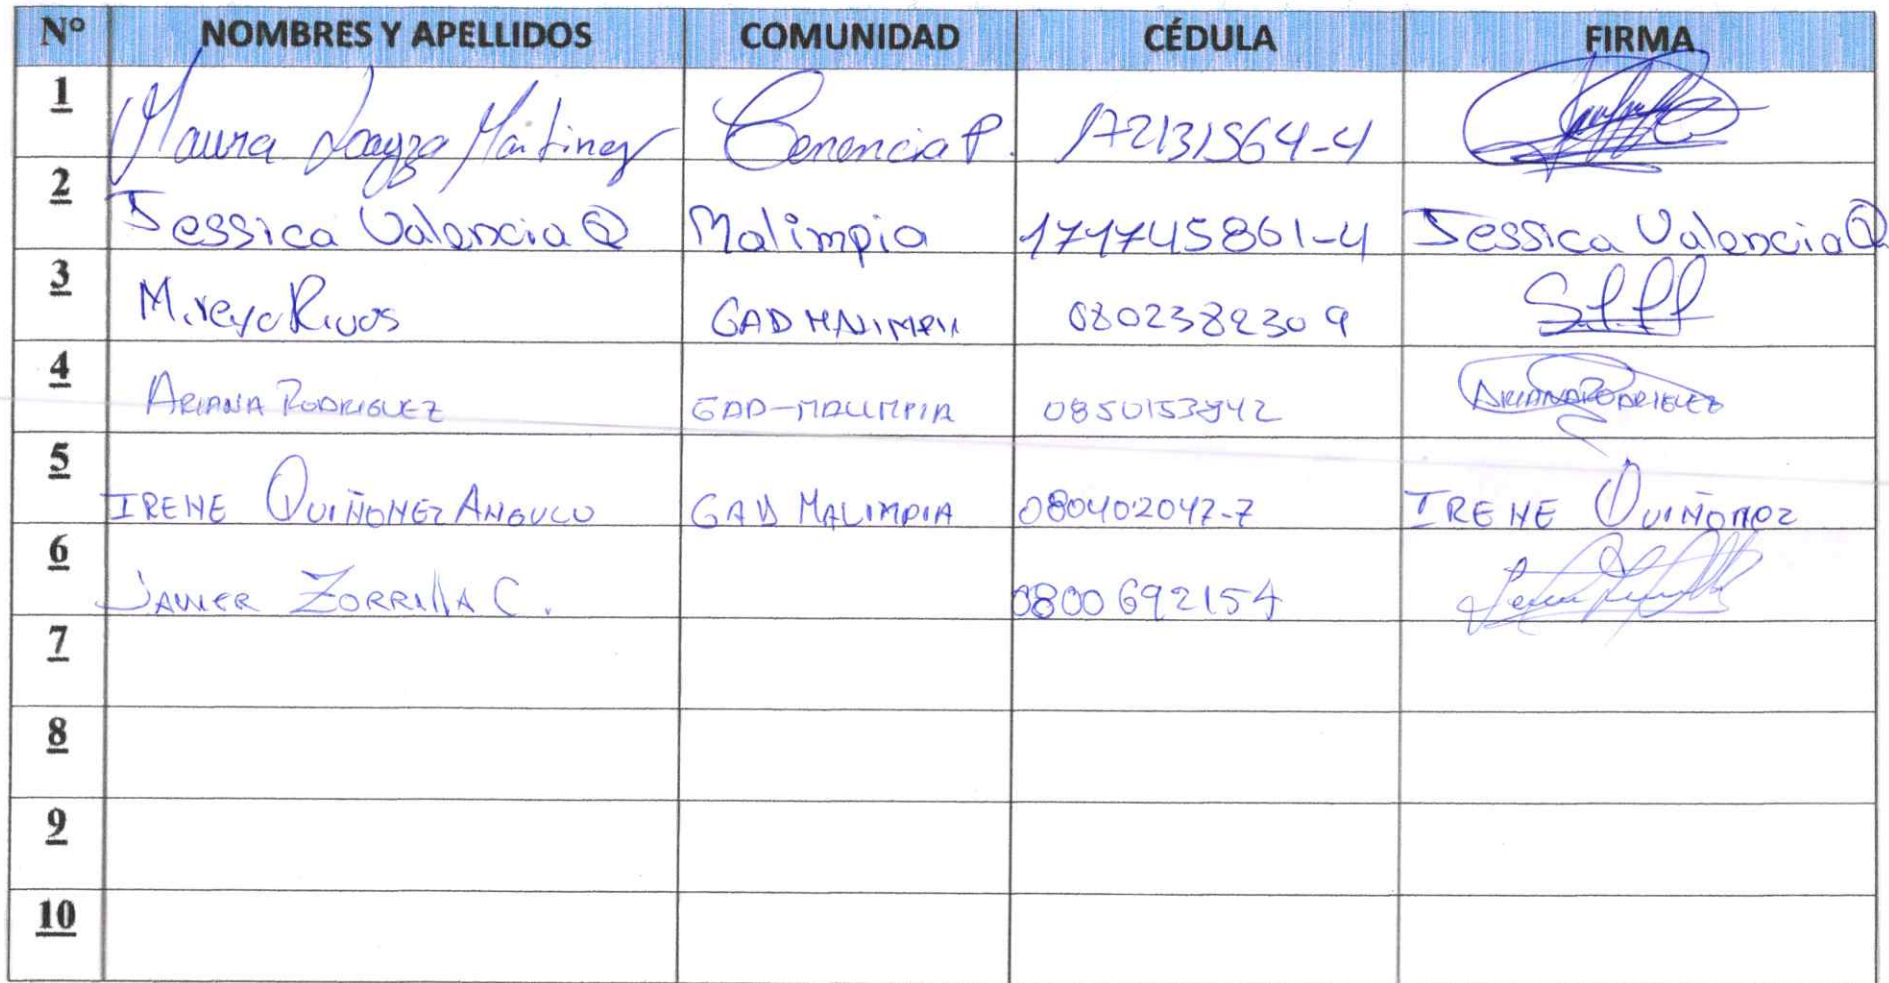 Nº NOMBRES Y APELLIDOS COMUNIDAD CÉDULA FIRMA
1 Maura Loayza Martinez P. 172131564-4
2 Jessica Valencia Q Malimpia 171745861-4 Jessica Valencia Q
3 Mireya Rivas GAD 0802382309
4 ARIANA RODRIGUEZ GAD-MALIMPIA ARIANA RODRIGUEZ
5 IRENE QUIÑONEZ ANGULO GAD MALIMPIA 080402047-7 IRENE QUIÑONEZ
6 JAVIER ZORRILLA C. 0800692154
7
8
9
10